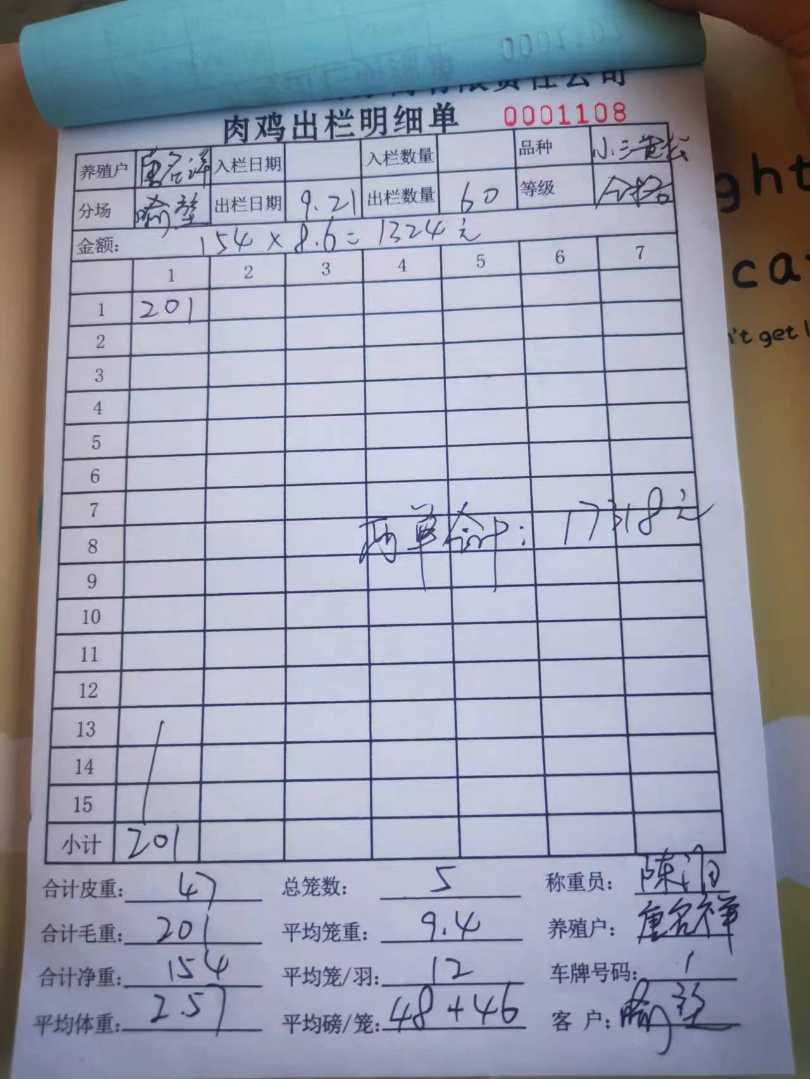 有限责任公司
肉鸡出栏明细单 0001108
养殖户 唐名祥 入栏日期 入栏数量 品种 小三黄
分场 出栏日期 9.21 出栏数量 60 等级 合格
金额: 154 × 8.6 = 1324元
1 2 3 4 5 6 7
1 201
2
3
4
5
6
7
两单合计: 17318元
8
9
10
11
12
13
14
15
小计 201
合计皮重: 47 总笼数: 5 称重员: 陈
合计毛重: 201 平均笼重: 9.4 养殖户: 唐名祥
合计净重: 154 平均笼/羽: 12 车牌号码: 1
平均体重: 2.57 平均磅/笼: 48+46 客 户:
ght
ca
't get l